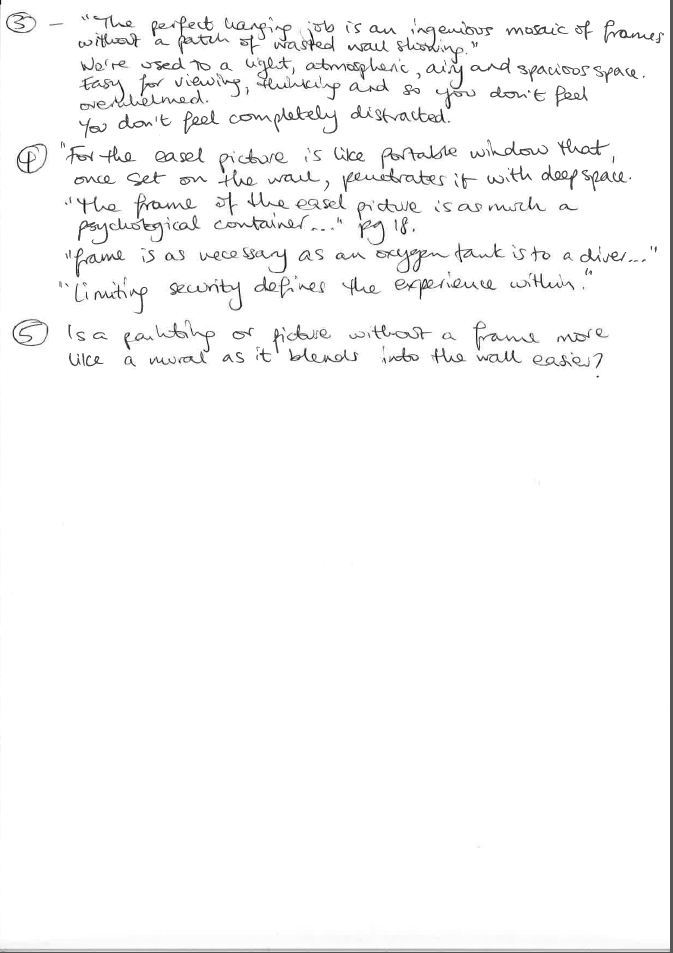 ③ - "The perfect hanging job is an ingenious mosaic of frames
without a patch of wasted wall showing."
We're used to a light, atmospheric, airy and spacious space.
Easy for viewing, thinking and so you don't feel
overwhelmed.
You don't feel completely distracted.
④ "For the easel picture is like portable window that,
once set on the wall, penetrates it with deep space.
"The frame of the easel picture is as much a
psychological container..." pg 18.
"frame is as necessary as an oxygen tank is to a diver..."
"Limiting security defines the experience within."
⑤ Is a painting or picture without a frame more
like a mural as it blends into the wall easier?